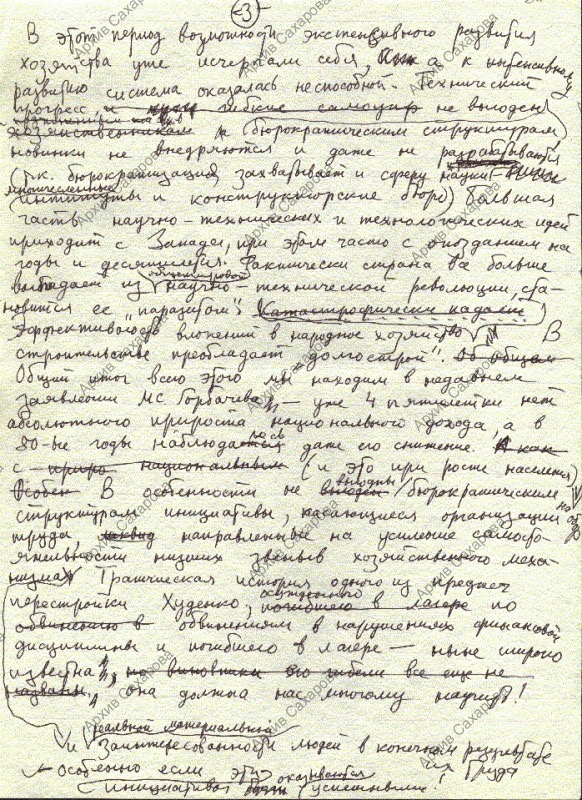 -3-
В этот период возможности экстенсивного развития
хозяйства уже исчерпали себя, а к интенсивному
развитию система оказалась неспособной. Технический
прогресс, не выгоден
хозяйственникам и бюрократическим структурам)
новинки не внедряются и даже не разрабатываются
(т.к. бюрократизация захватывает и сферу науки —
многочисленные
институты и конструкторские бюро) Большая
часть научно-технических и технологических идей
приходит с Запада, при этом часто с опозданием на
годы и десятилетия. Фактически страна все больше
общемировой
выпадает из научно-технической революции, ста-
новится ее "паразитом". Катастрофически падает
Эффективность вложений в народное хозяйство В
строительстве преобладает "долгострой". Об общем
Общий итог всего этого мы находим в недавнем
заявлении МС Горбачева, — уже 4 пятилетки нет
абсолютного прироста национального дохода, а в
80-ые годы наблюдалось даже его снижение. А как
с приро национальным (и это при росте населения)
Особен В особенности не выгодны бюрократическим
структурам инициативы, касающиеся организации
труда, направленные на усиление самосто-
ятельности низших звеньев хозяйственного меха-
низма Трагическая история одного из предтеч
осужденного
перестройки Худенко, погибшего в лагере по
обвинению в обвинениям в нарушениях финансовой
дисциплины и погибшего в лагере — ныне широко
известна, но виновники его гибели все еще не
названы, она должна нас многому научить!
реальной материальной
и заинтересованности людей в конечном результате
их труда
особенно если эти оказываются
инициативы успешными!
Архив Сахарова